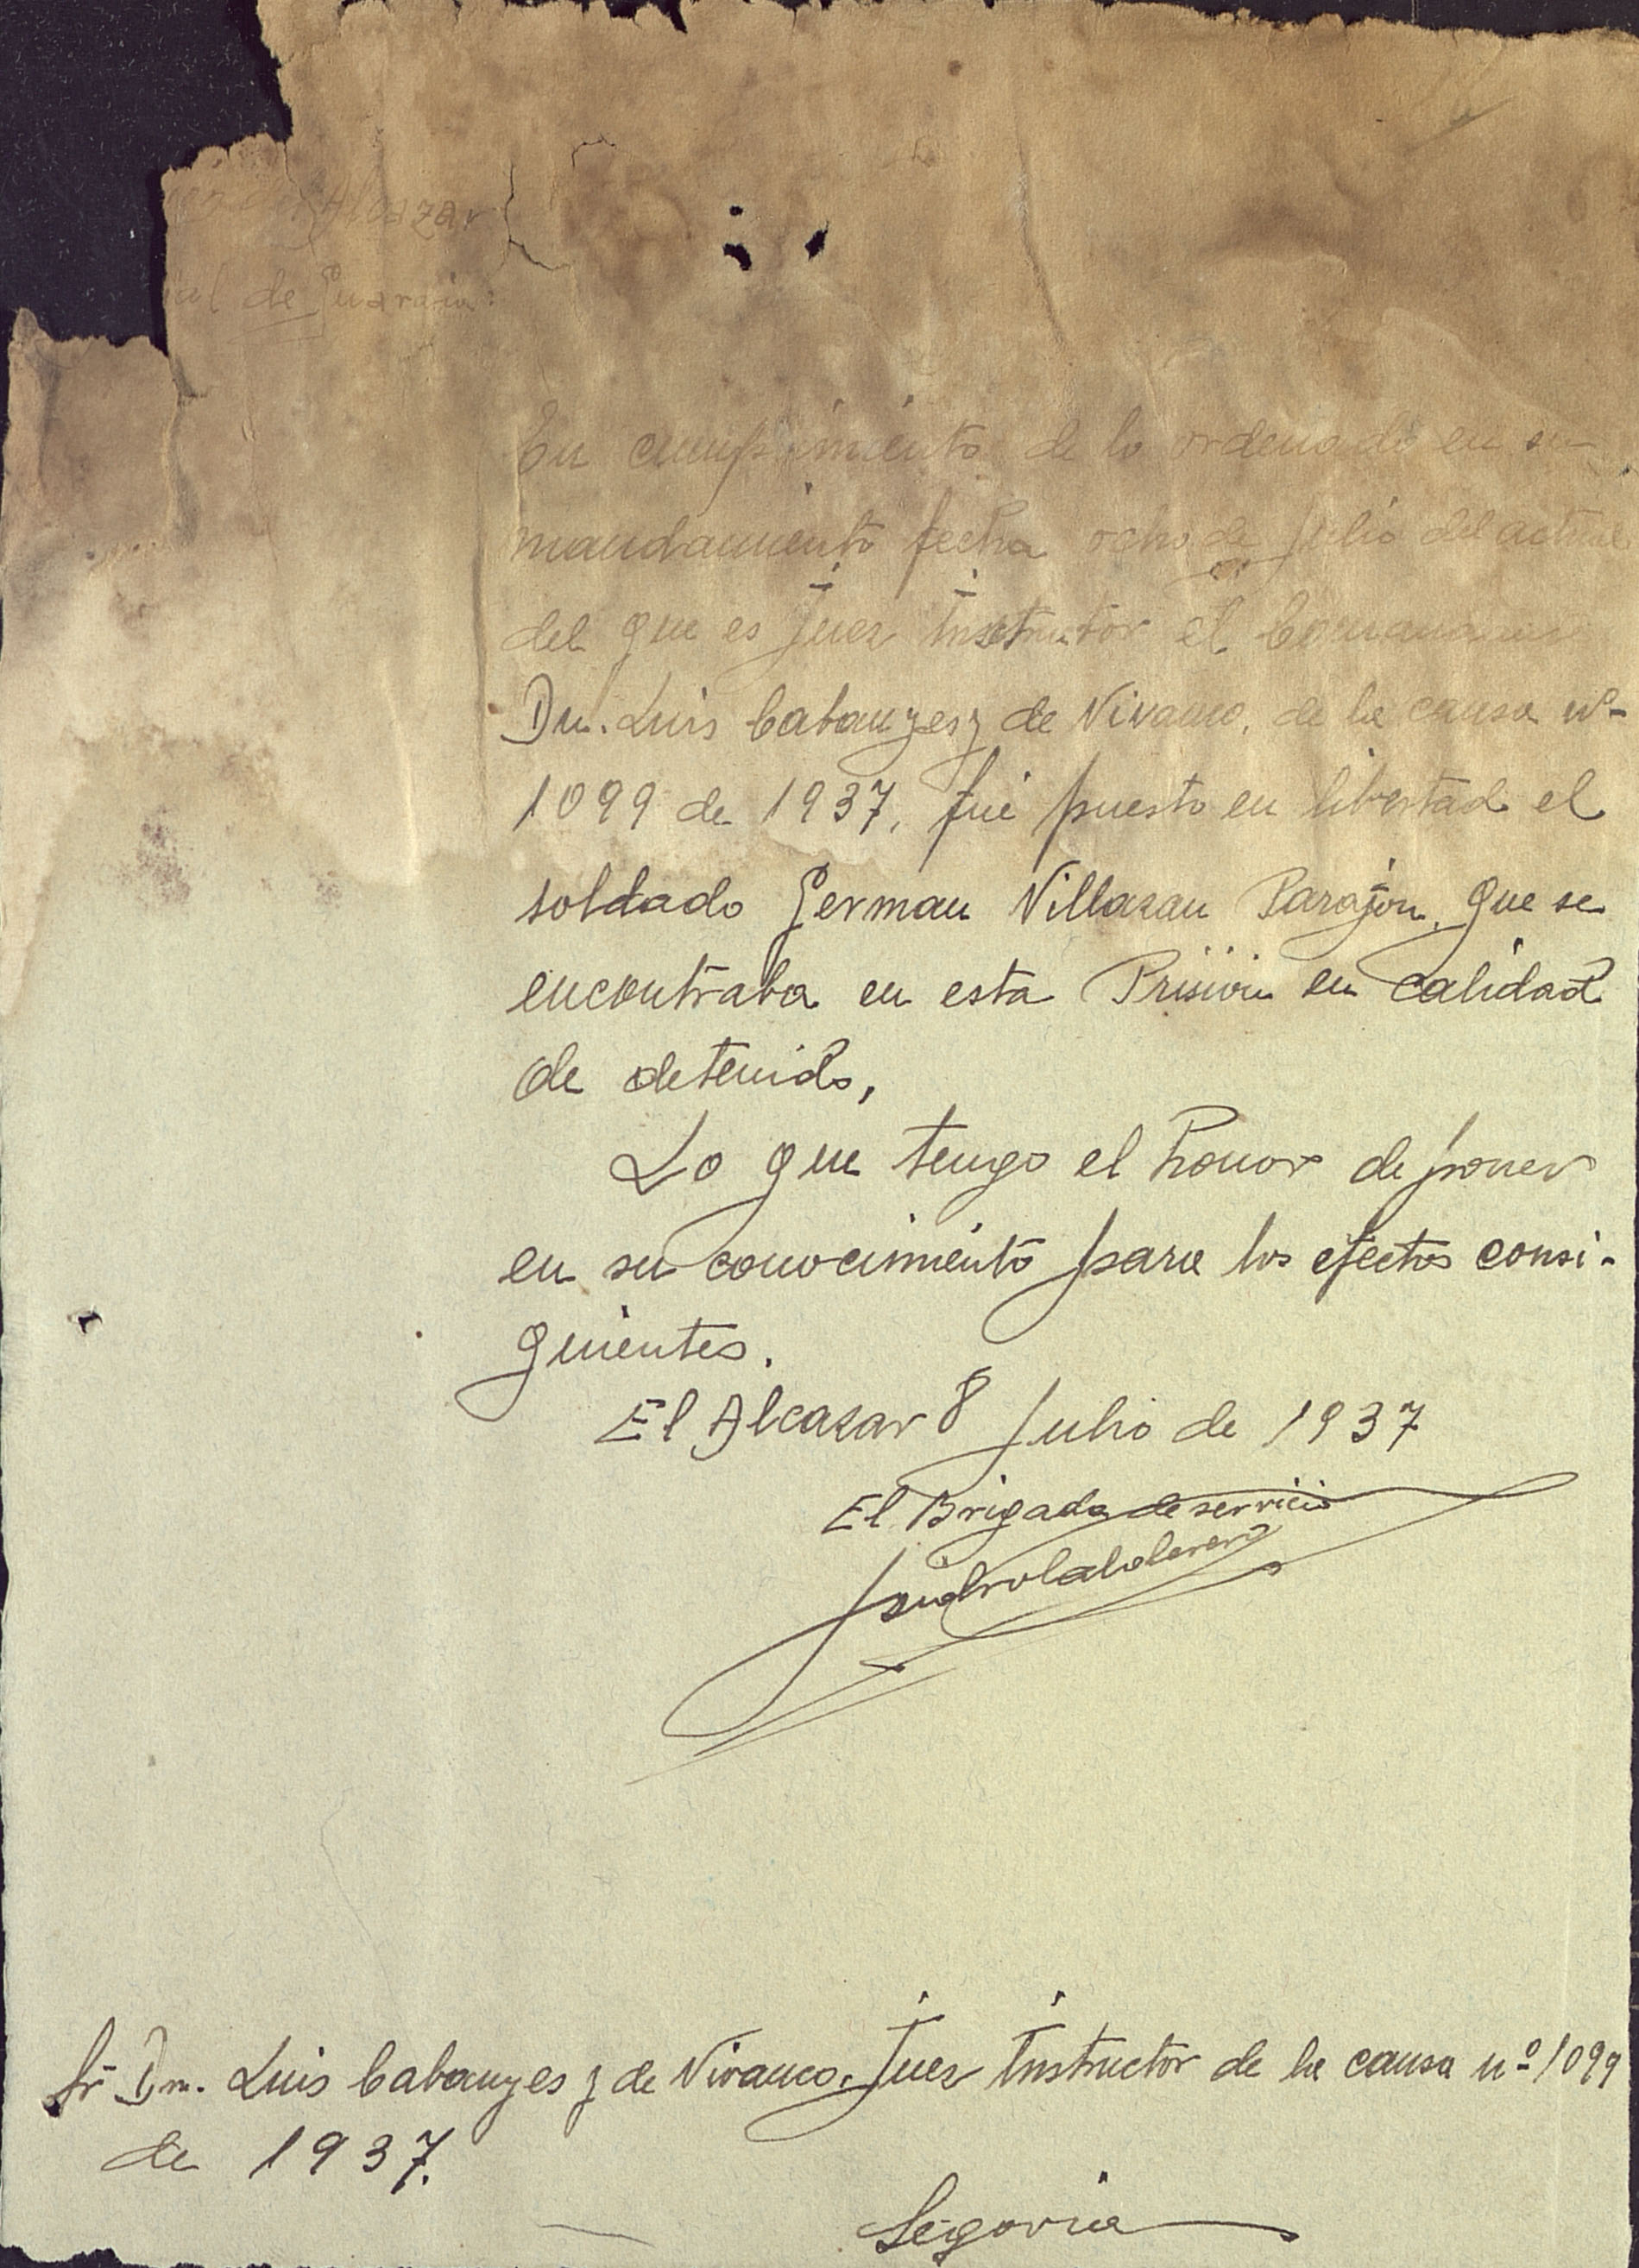 Alcazar
de Guardia:
En cumplimiento de lo ordenado en su
mandamiento fecha ocho de Julio del actual
del que es Juez Instructor el Comandante
Dn. Luis Cabanyes y de Vivanco, de la causa nº
1099 de 1937, fué puesto en libertad el
soldado German Villazan Parajón, que se
encontraba en esta Prisión en calidad
de detenido,
Lo que tengo el honor de poner
en su conocimiento para los efectos consi-
guientes.
El Alcazar 8 Julio de 1937
El Brigada de servicio
Sr Dn. Luis Cabanyes y de Vivanco. Juez Instructor de la causa nº 1099
de 1937.
Segovia